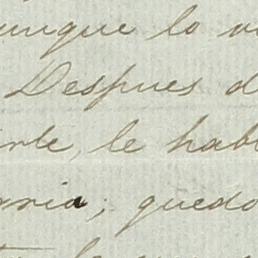 unque lo
Despues d
irte, le hab
aria; quedo